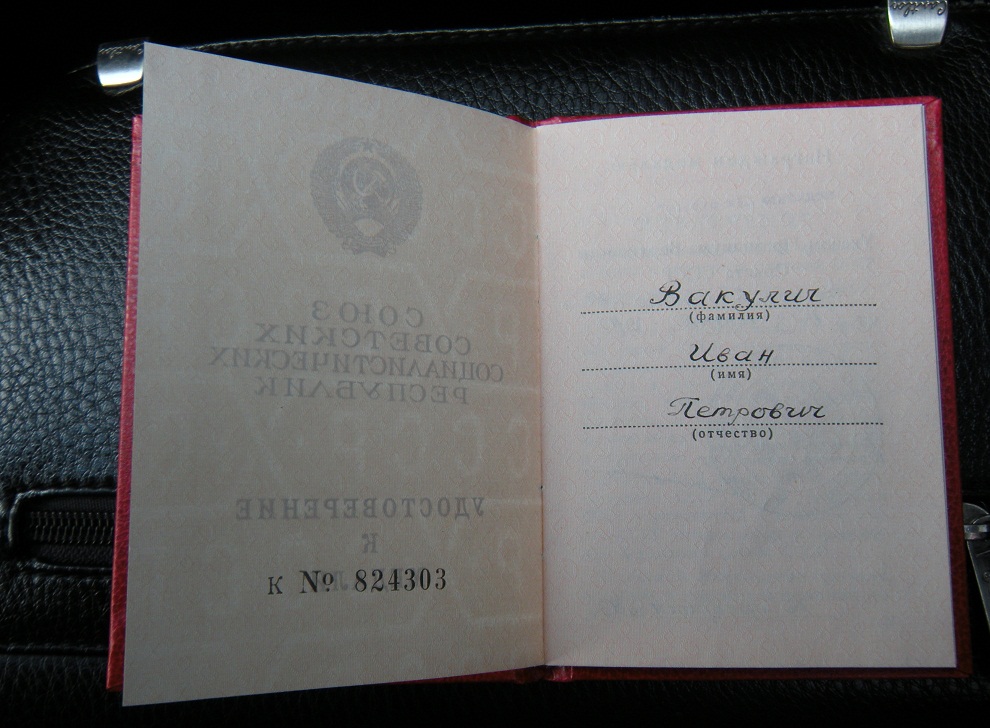 СОЮЗ
СОВЕТСКИХ
СОЦИАЛИСТИЧЕСКИХ
РЕСПУБЛИК
УДОСТОВЕРЕНИЕ
К
К № 824303
Вакулич
(фамилия)
Иван
(имя)
Петрович
(отчество)